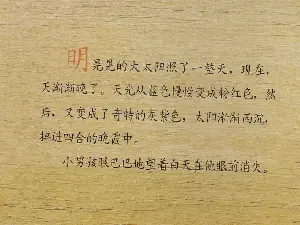 明晃晃的大太阳照了一整天，现在，
天渐渐晚了。天光从蓝色慢慢变成粉红色，然
后，又变成了奇特的灰紫色，太阳渐渐西沉，
掉进四合的晚霞中。
小男孩眼巴巴地望着白天在他眼前消失。